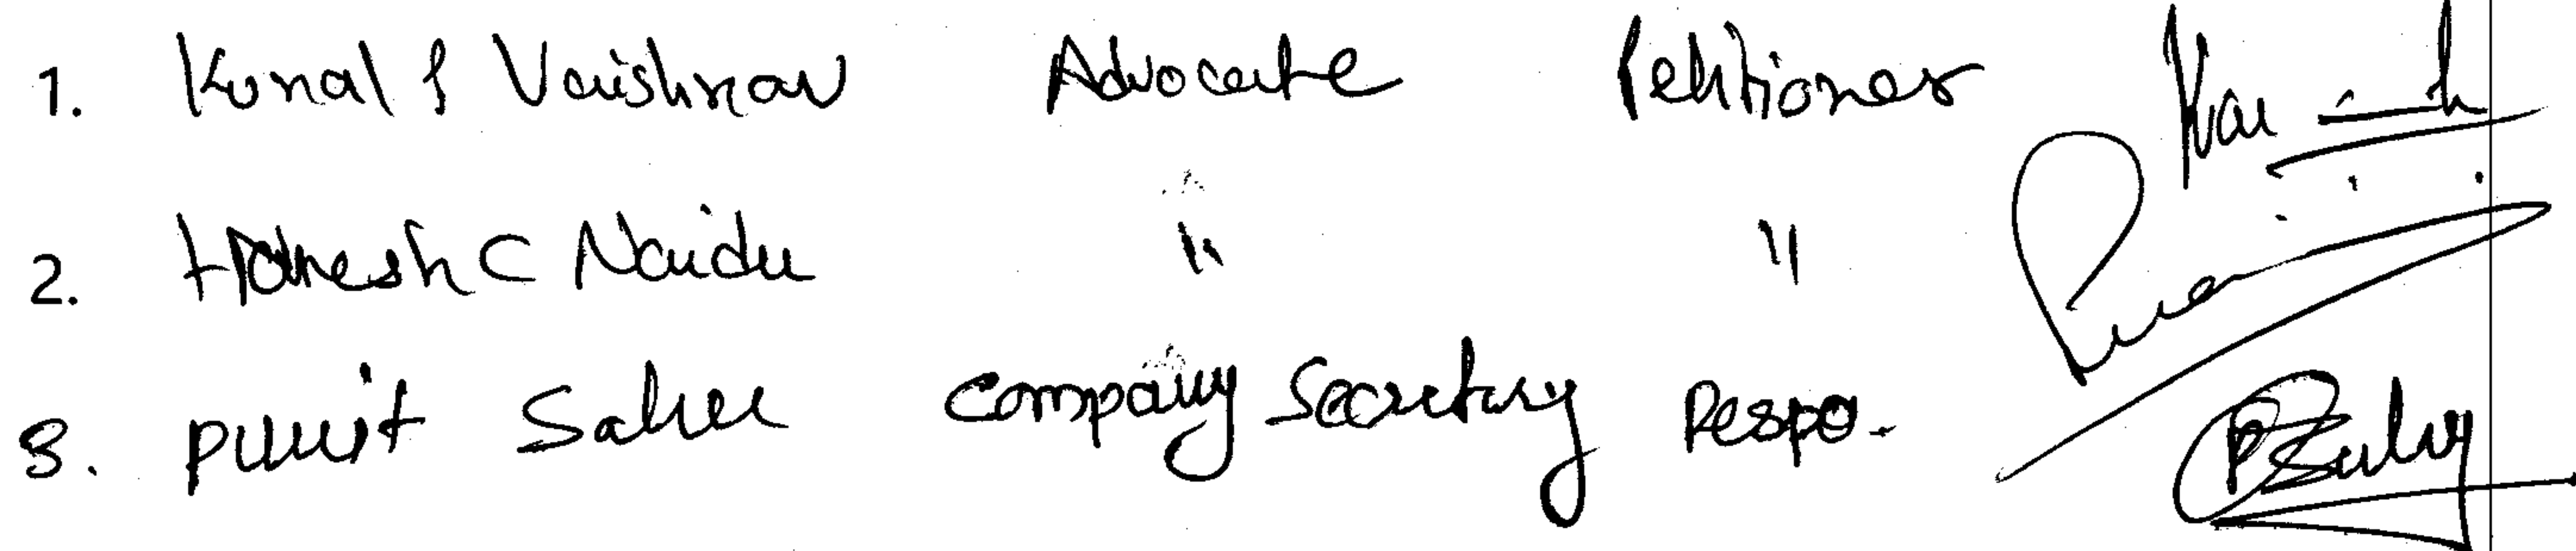 1. Kunal P Vaishnav Advocate Petitioner
2. Haresh C Naidu " "
3. Punit Sahu Company Secretary Respo.